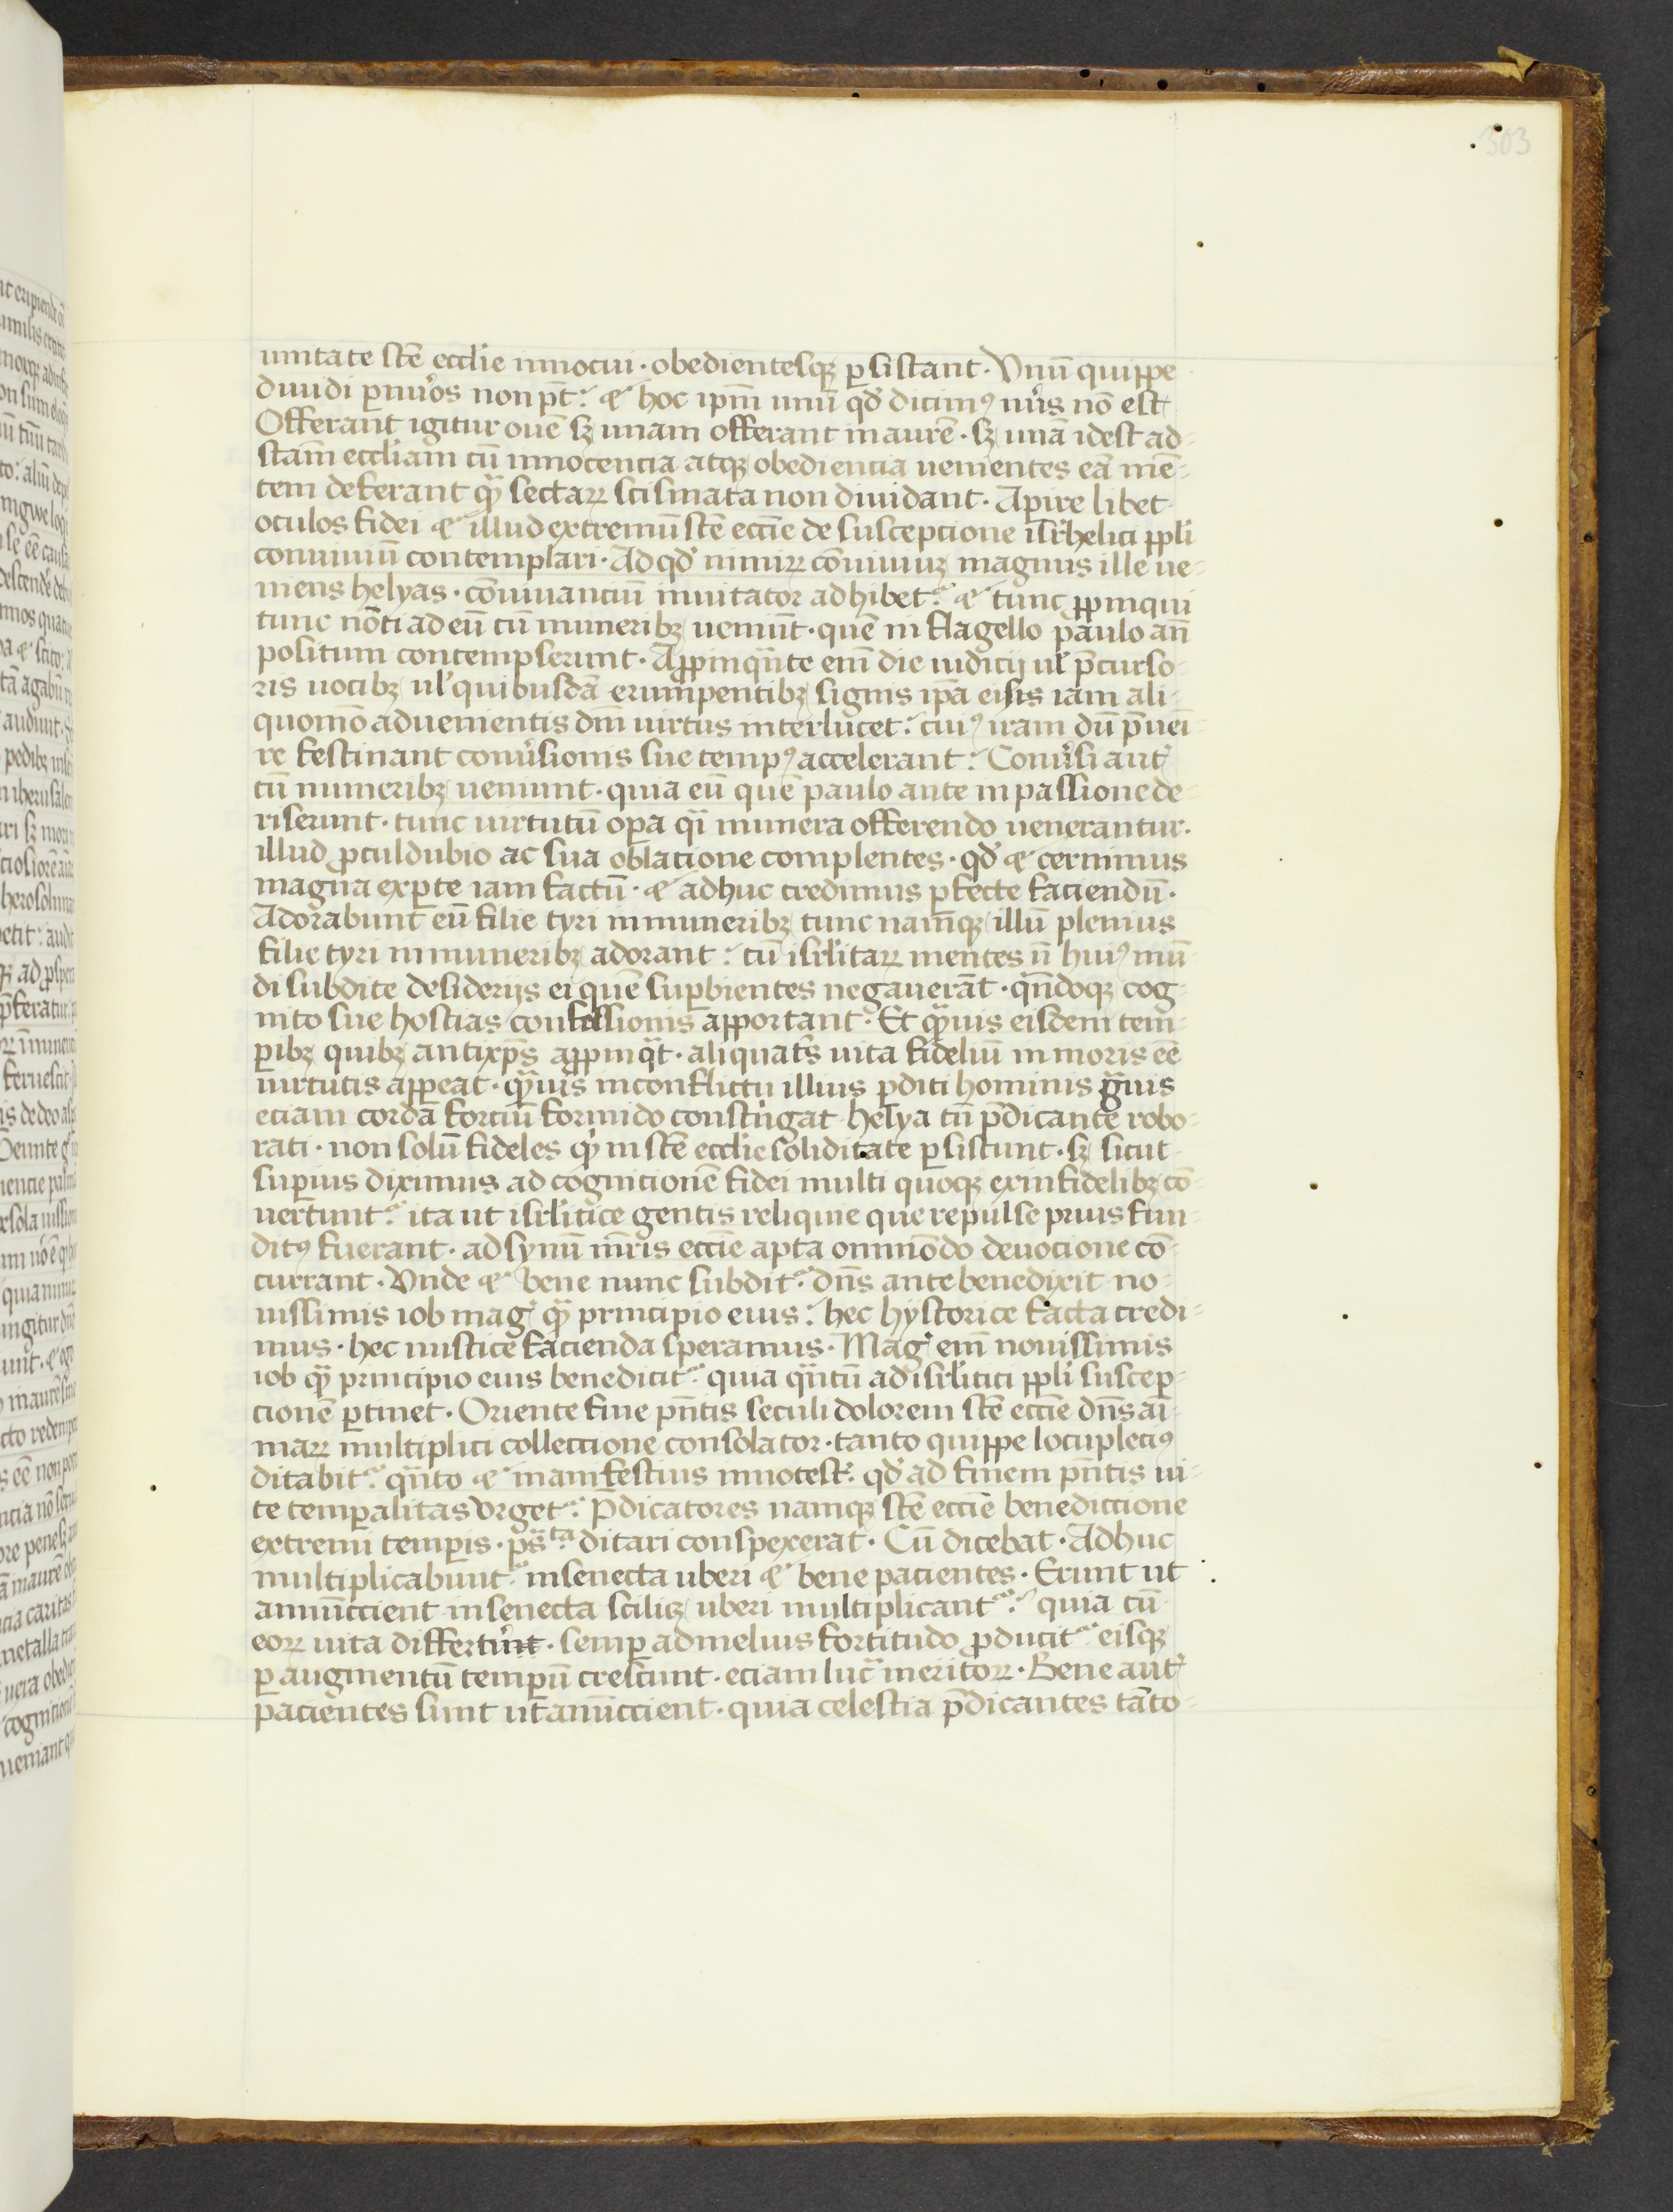 303
unitate stē eccl'ie innocui · obedientesqꝫ ꝑsistant · Vnū quippe
diuidi ꝑ nūos non pt̄ : & hoc ipm̄ unū qd̓ dicimꝰ nūs nō est
Offerant igitur ouē sꝫ unam offerant inaurē · sꝫ unā idest ad
stām eccl'iam cū innocencia atqꝫ obediencia uenientes eā mē
tem deferant qᷓ sectaꝝ scismata non diuidant · Apire libet
oculos fidei & illud extremū stē eccīe de suscepcione isrl'helici ppl'i
conuiuiū contemplari · Ad qd̓ nimiꝝ cōuiuiuꝫ magnus ille ue
niens helyas · cōuiuanciū inuitator adhibet᷑ & tunc ꝓpinqui
tunc nōti ad eū cū muneribꝫ ueniūt · quē in flagello paulo an̄
positum contempserunt · Aꝓpinqᷓnte enī die iudicij ul̓ p̄curso
ris uocibꝫ ul̓ quibusdā erumpentibꝫ signis ipa eisis iam ali
quomō aduenientis dnī uirtus interlucet : cuiꝰ iram dū p̄uei
re festinant conūsionis sue tempꝰ accelerant : Conūsi aut̓
cū muneribꝫ ueniunt · quia eū quē paulo ante in passione de
riserunt · tunc uirtutū oꝑa qᷓi munera offerendo uenerantur ·
illud ꝓculdubio ac sua oblacione complentes · qd̓ & cernimus
magna exꝑte iam factū · & adhuc credimus ꝑfecte faciendū ·
Adorabunt eū filie tyri in muneribꝫ tunc namqꝫ illū plenius
filie tyri in muneribꝫ adorant : cū isrl'itaꝝ mentes n̄ huiꝰ mū
di subdite desiderijs ei quē suꝑbientes negauerāt · qn̄doqꝫ cog
nito sue hostias confessionis apportant : Et qᷓuis eisdem tem
ꝑibꝫ quibꝫ antixp̄s aꝓpinqᷓt · aliquat̓s uita fideliū in moris eē
uirtutis appeat · qᷓuis in conflictu illius ꝑditi hominis gᷓuis
eciam corda forciū formido constᷓigat helya tn̄ p̄dicante robo
rati · non solū fideles qᷓ in stē eccl'ie soliditate ꝑsistunt · sꝫ sicut
suꝑius diximus ad cognicionē fidei multi quoqꝫ ex infidelibꝫ cō
uertunt᷑ ita ut isrl'itice gentis reliquie que repulse prius fun
ditꝰ fuerant · ad synū mr̄is eccīe apta omnīodo deuocione cō
currant · Vnde & bene nunc subdit᷑ dn̄s ante benedixit no
uissimis iob mag̓ qᷓ principio eius : hec hystorice facta credi
mus · hec mistice facienda speramus · Mag̓ enī nouissimis
iob qᷓ principio eius benedicit᷑ quia qᷓntū ad isrl'itici ppl'i suscep
cionē ꝑtinet · Oriente fine pn̄tis seculi dolorem stē eccīe dn̄s ai
maꝝ multiplici colleccione consolator · tanto quippe locupleciꝰ
ditabit᷑ qᷓnto & manifestius innotest̓ qd̓ ad finem pn̄tis ui
te temꝑalitas vrget᷑ P̄dicatores namqꝫ stē eccīe benediccione
extremi temꝑis · ps̄ta ditari conspexerat · Cū dicebat · Adhuc
multiplicabunt᷑ in senecta uberi & bene pacientes · Erunt ut
annūccient in senecta sciliꝫ uberi multiplicant᷑ quia cū
eoꝝ uita differtur̄ · semꝑ ad melius fortitudo ꝓducit᷑ eisqꝫ
ꝑ augmentū temꝑū crescunt · eciam lucᷓ meritoꝝ · Bene aut̓
pacientes sunt ut anūccient · quia celestia p̄dicantes tāto